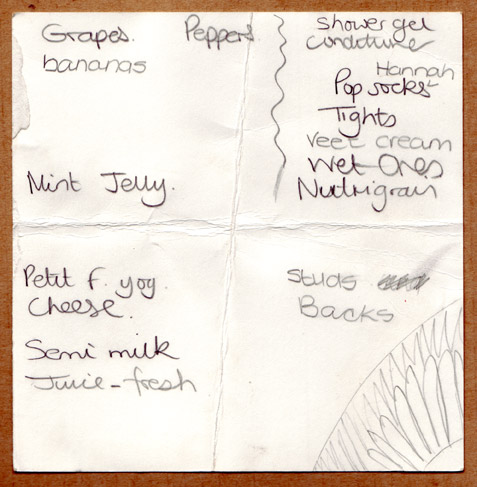 Grapes. Peppers.
bananas
Mint Jelly.
Petit f. yog.
Cheese.
Semi milk
Juice - fresh
Shower gel
Conditioner
Hannah
Pop socks
Tights
Veet cream
Wet Ones
Nutrigrain
Studs
Backs